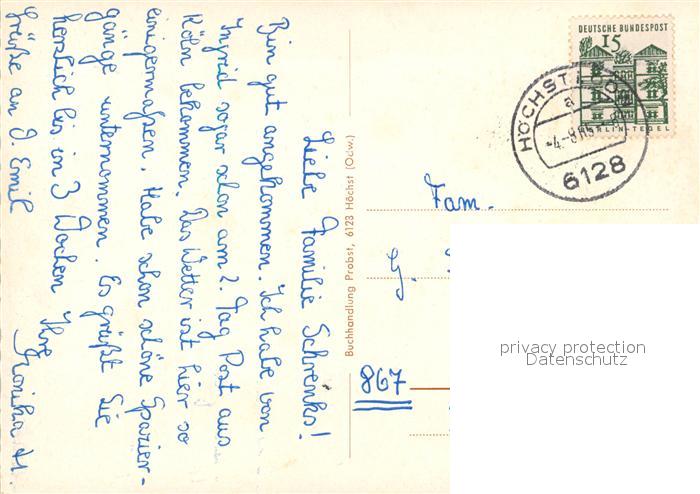 Liebe Familie Schrenks!
Bin gut angekommen. Ich habe von
Ingrid sogar schon am 2. Tag Post aus
Köln bekommen. Das Wetter ist hier so
einigermaßen. Habe schon schöne Spazier-
gänge unternommen. Es grüßt Sie
herzlich bis in 3 Wochen Ihre
Grüße an O. Emil
Monika H.
Buchhandlung Probst, 6123 Höchst (Odw.)
DEUTSCHE BUNDESPOST
15
BERLIN-TEGEL
HÖCHST
a
-4.-8.
6128
Fam.
G.
867
privacy protection
Datenschutz